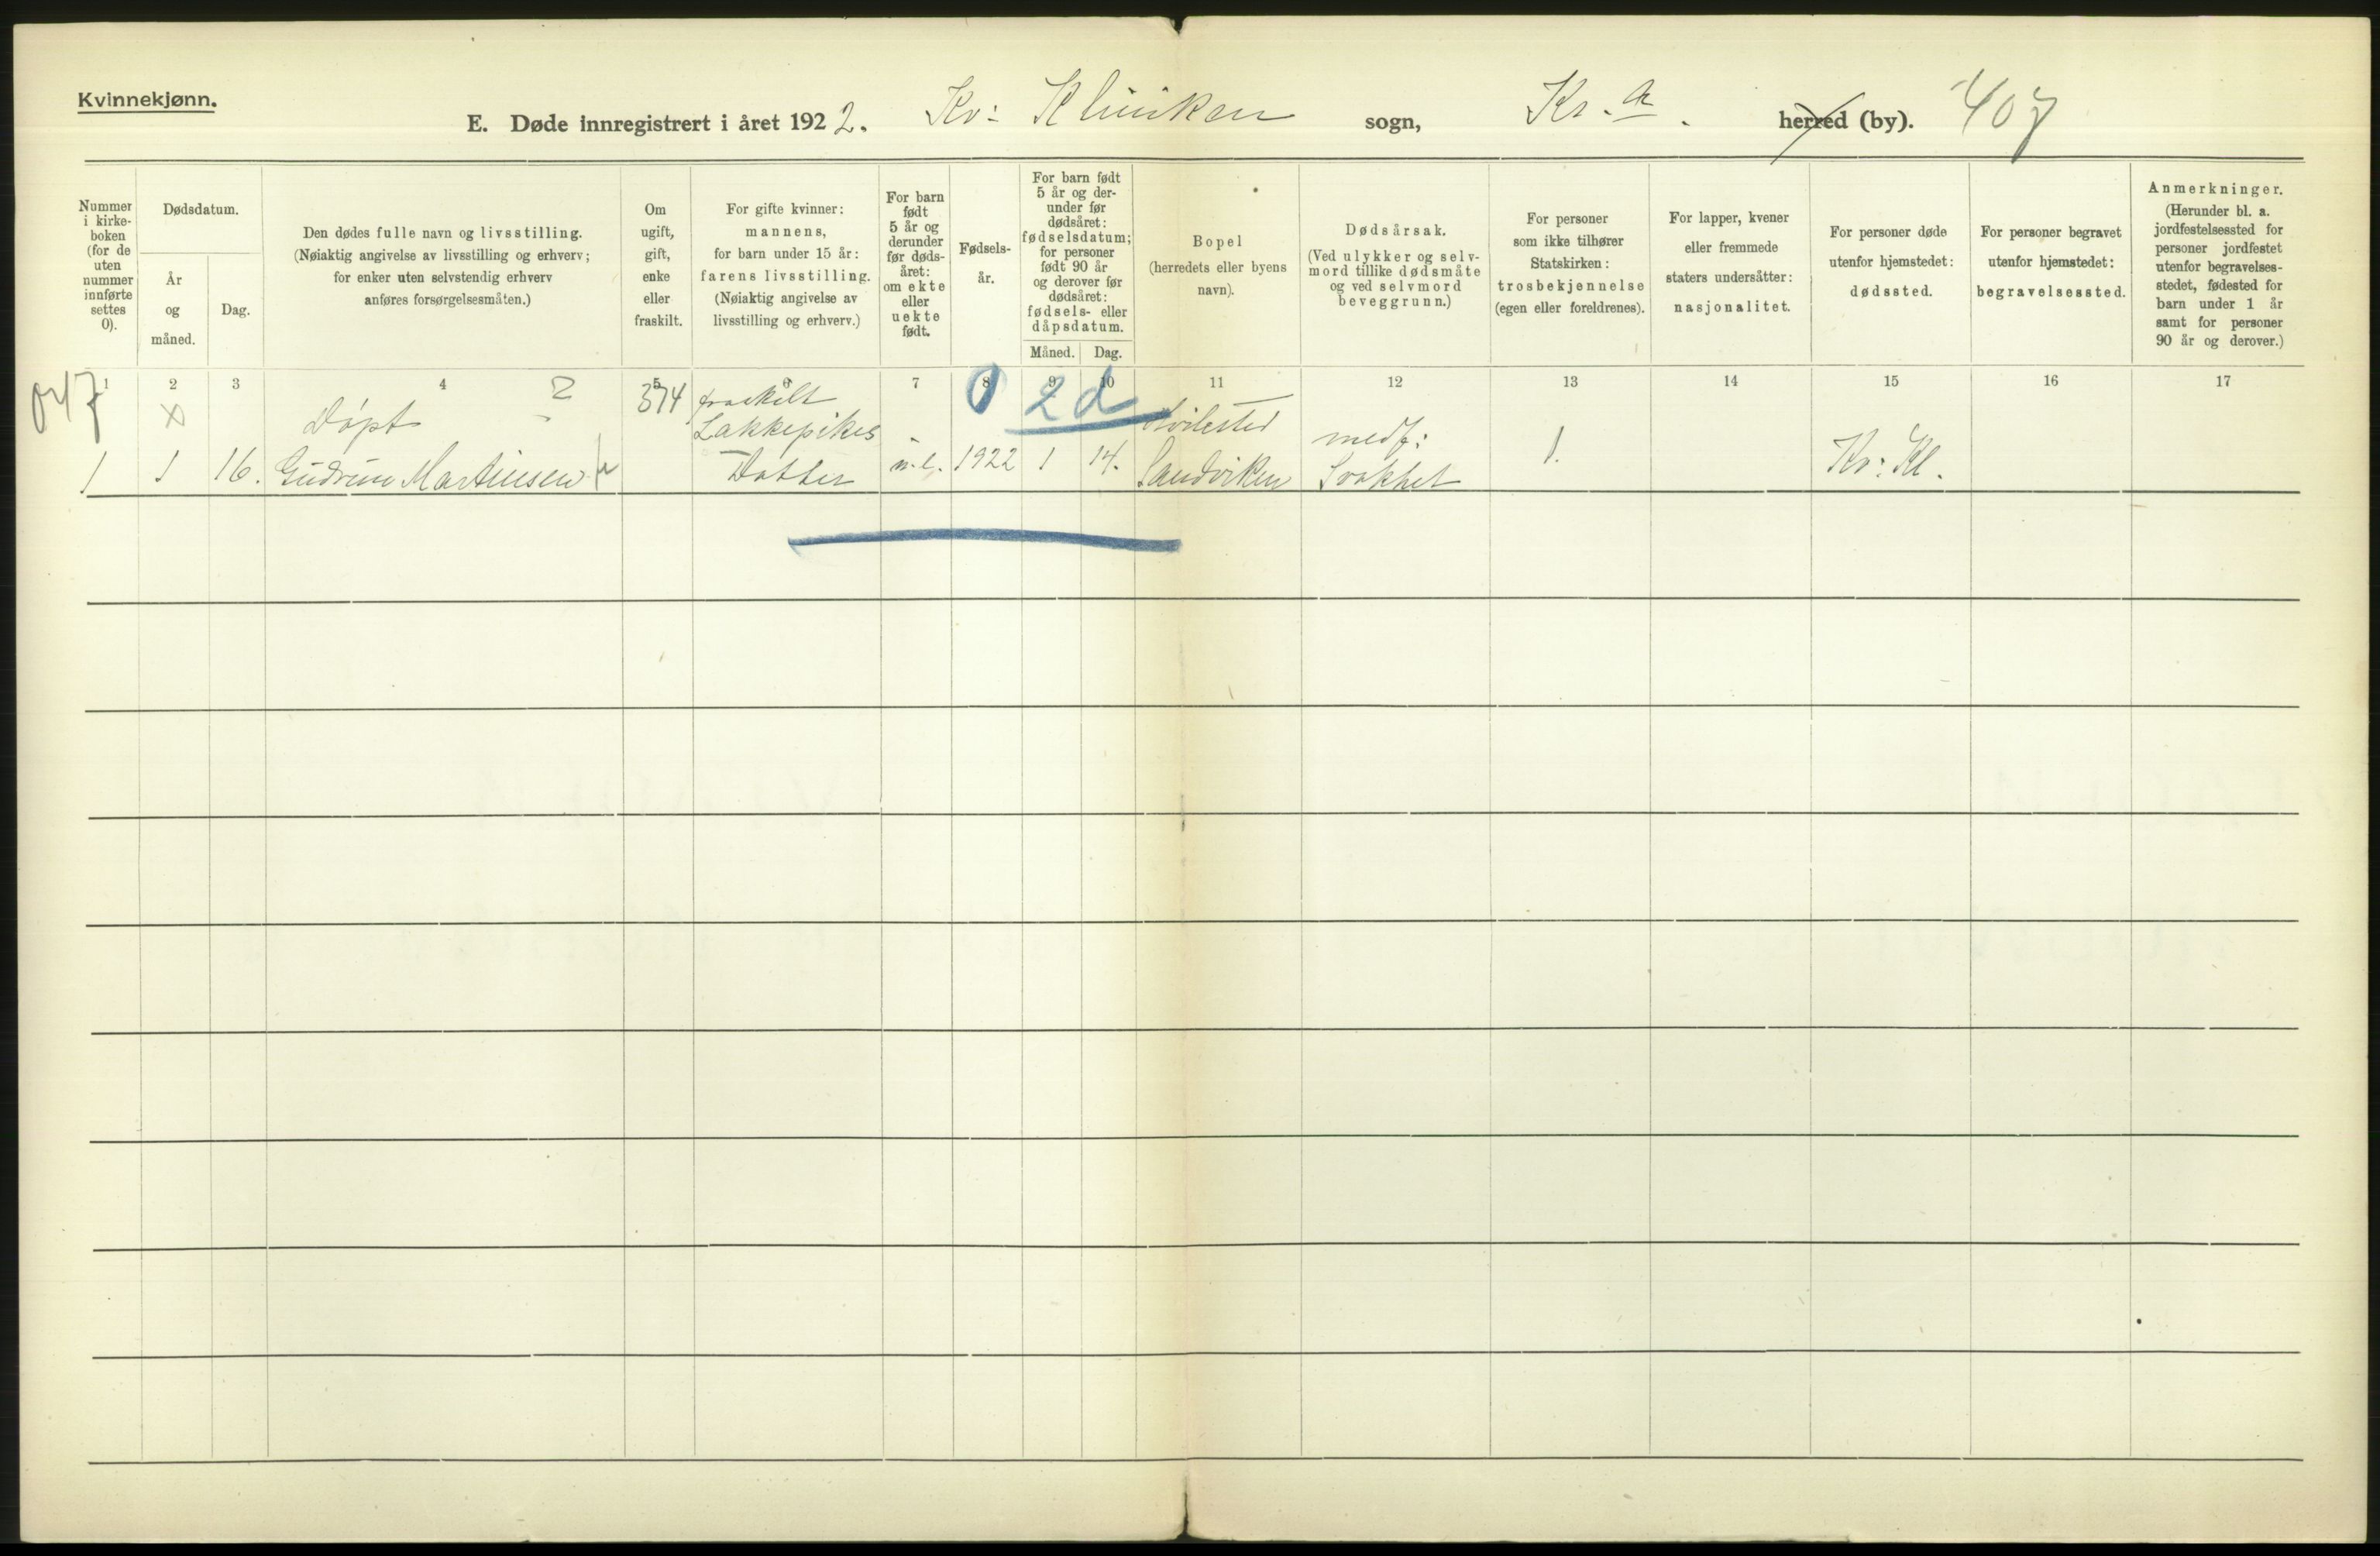 Kvinnekjønn.
E. Døde innregistrert i året 1922. Kv: Kliniken sogn, Kr.a. herred (by). 407
Nummer i kirke-boken (for de uten nummer innførte settes 0).
Dødsdatum.
År og måned.
Dag.
Den dødes fulle navn og livsstilling.
(Nøiaktig angivelse av livsstilling og erhverv;
for enker uten selvstendig erhverv
anføres forsørgelsesmåten.)
Om ugift, gift, enke eller fraskilt.
For gifte kvinner:
mannens,
for barn under 15 år:
farens livsstilling.
(Nøiaktig angivelse av
livsstilling og erhverv.)
For barn født 5 år og derunder før døds-året: om ekte eller uekte født.
Fødsels-år.
For barn født 5 år og der-under før dødsåret: fødselsdatum; for personer født 90 år og derover før dødsåret: fødsels- eller dåpsdatum.
Måned. Dag.
Bopel
(herredets eller byens
navn).
Dødsårsak.
(Ved ulykker og selv-
mord tillike dødsmåte
og ved selvmord
beveggrunn.)
For personer
som ikke tilhører
Statskirken:
trosbekjennelse
(egen eller foreldrenes).
For lapper, kvener
eller fremmede
staters undersåtter:
nasjonalitet.
For personer døde
utenfor hjemstedet:
dødssted.
For personer begravet
utenfor hjemstedet:
begravelsessted.
Anmerkninger.
(Herunder bl. a.
jordfestelsessted for
personer jordfestet
utenfor begravelses-
stedet, fødested for
barn under 1 år
samt for personer
90 år og derover.)
1 2 3 4 5 6 7 8 9 10 11 12 13 14 15 16 17
x Døpt 2 374 fraskilt 0 2 d
Lakkepikes medf:
1 1 16. Gudrun Martinsen Datter u.e. 1922 1 14. Sandviken Svakhet 1. Kv: Kl.